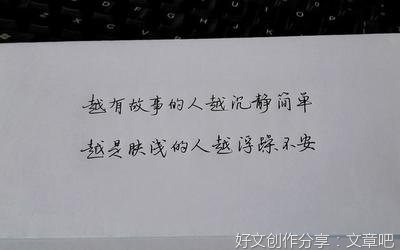 越有故事的人越沉静简单
越是肤浅的人越浮躁不安
好文创作分享：文章吧